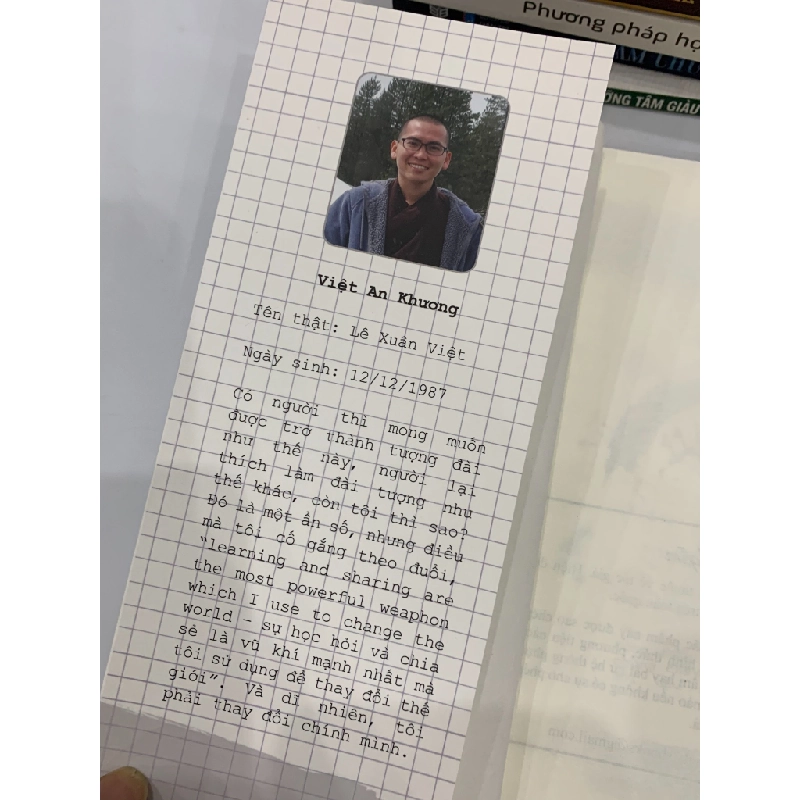 Phương pháp họ
ƠNG TÂM GIÀU
Việt An Khương
Tên thật: Lê Xuân Việt
Ngày sinh: 12/12/1987
Có người thì mong muốn
được trở thành tượng đài
như thế này, người lại
thích làm đài tượng như
thế khác, còn tôi thì sao?
Đó là một ẩn số, nhưng điều
mà tôi cố gắng theo đuổi,
"learning and sharing are
the most powerful weaphon
which I use to change the
world - sự học hỏi và chia
sẻ là vũ khí mạnh nhất mà
tôi sử dụng để thay đổi thế
giới". Và dĩ nhiên, tôi
phải thay đổi chính mình.